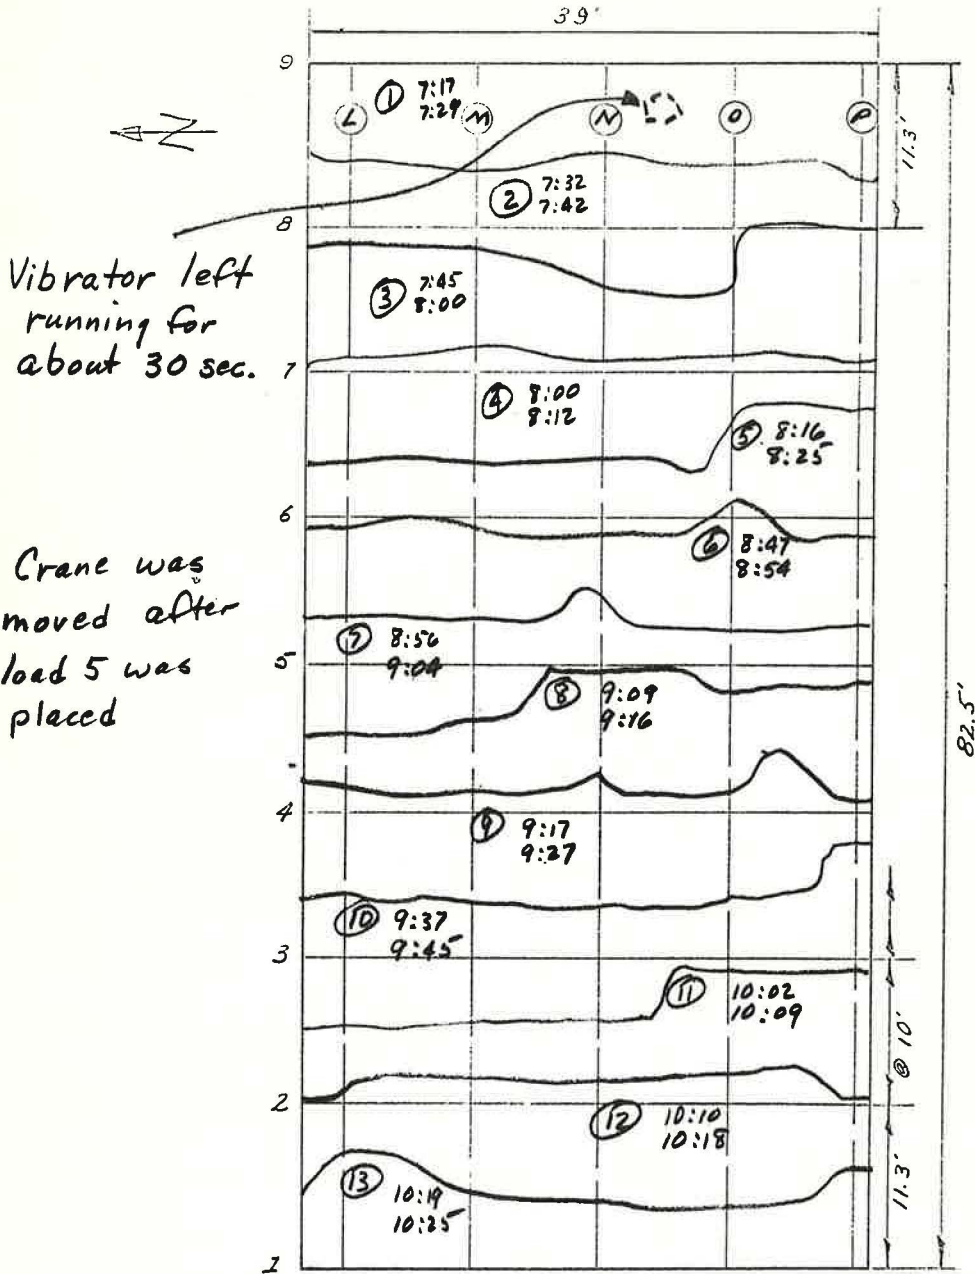 39'
9
① 7:17
7:29
L
M
N
O
P
11.3'
N
② 7:32
7:42
8
Vibrator left
running for
about 30 sec.
③ 7:45
8:00
7
④ 8:00
8:12
⑤ 8:16
8:25
6
⑥ 8:47
8:54
Crane was
moved after
load 5 was
placed
⑦ 8:56
9:04
5
⑧ 9:09
9:16
82.5'
4
⑨ 9:17
9:27
⑩ 9:37
9:45
3
⑪ 10:02
10:09
@ 10'
2
⑫ 10:10
10:18
⑬ 10:19
10:25
11.3'
1